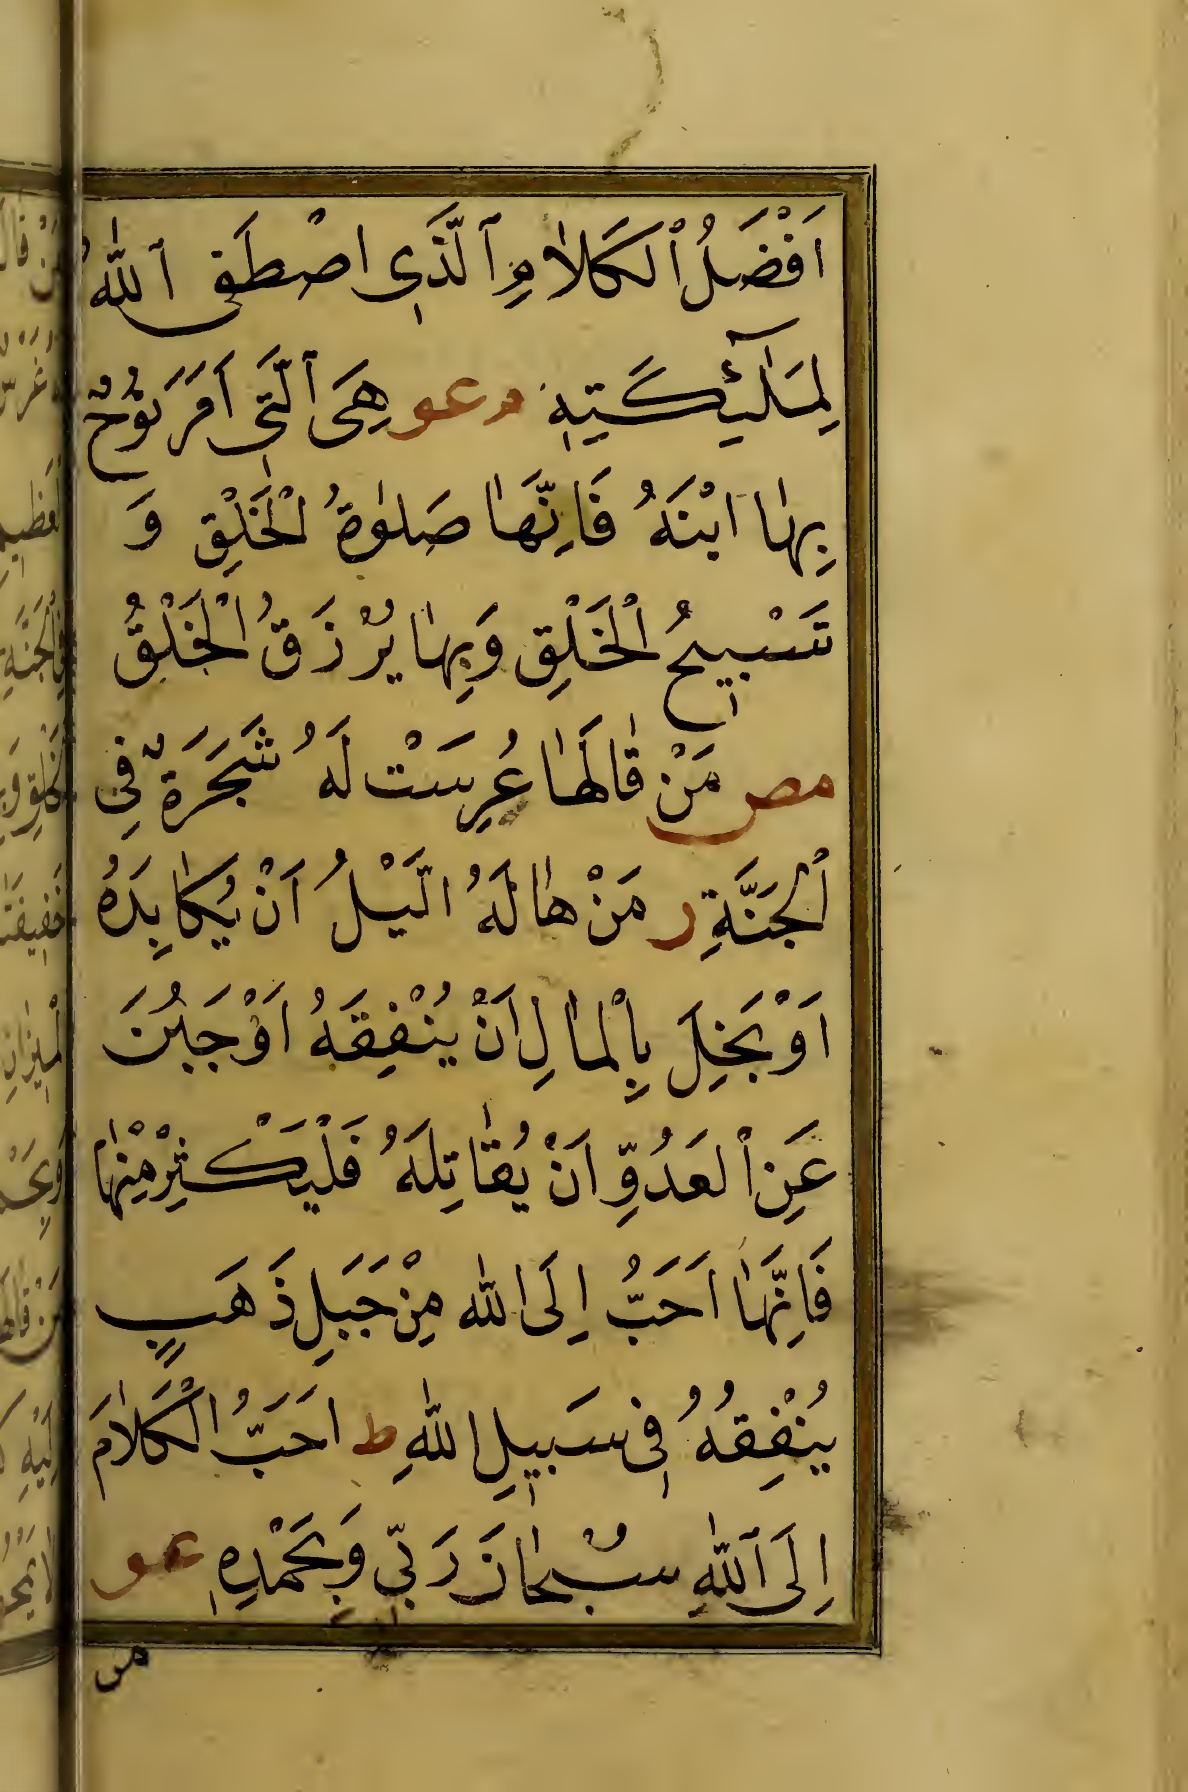 اَفْضَلُ ٱلْكَلَامِ ٱلَّذِى اصْطَفَى ٱللّٰهُ
لِمَلٰٓئِكَتِهٖ م عو هِىَ ٱلَّتِى اَمَرَ نُوْحٌ
بِهَا ابْنَهُ فَاِنَّهَا صَلٰوةُ الْخَلْقِ وَ
تَسْبِيحُ الْخَلْقِ وَبِهَا يُرْزَقُ الْخَلْقُ
مص مَنْ قَالَهَا غُرِسَتْ لَهُ شَجَرَةٌ فِى
الْجَنَّةِ ر مَنْ هَالَهُ الَّيْلُ اَنْ يُكَابِدَهُ
اَوْ بَخِلَ بِالْمَالِ اَنْ يُنْفِقَهُ اَوْ جَبُنَ
عَنِ الْعَدُوِّ اَنْ يُقَاتِلَهُ فَلْيَكْثِرْ مِنْهَا
فَاِنَّهَا اَحَبُّ اِلَى اللّٰه مِنْ جَبَلِ ذَهَبٍ
يُنْفِقُهُ فِى سَبِيلِ اللّٰهِ ط اَحَبُّ الْكَلَامَ
اِلَى ٱللّٰهِ سُبْحَانَ رَبِّى وَبِحَمْدِهٖ عو
من